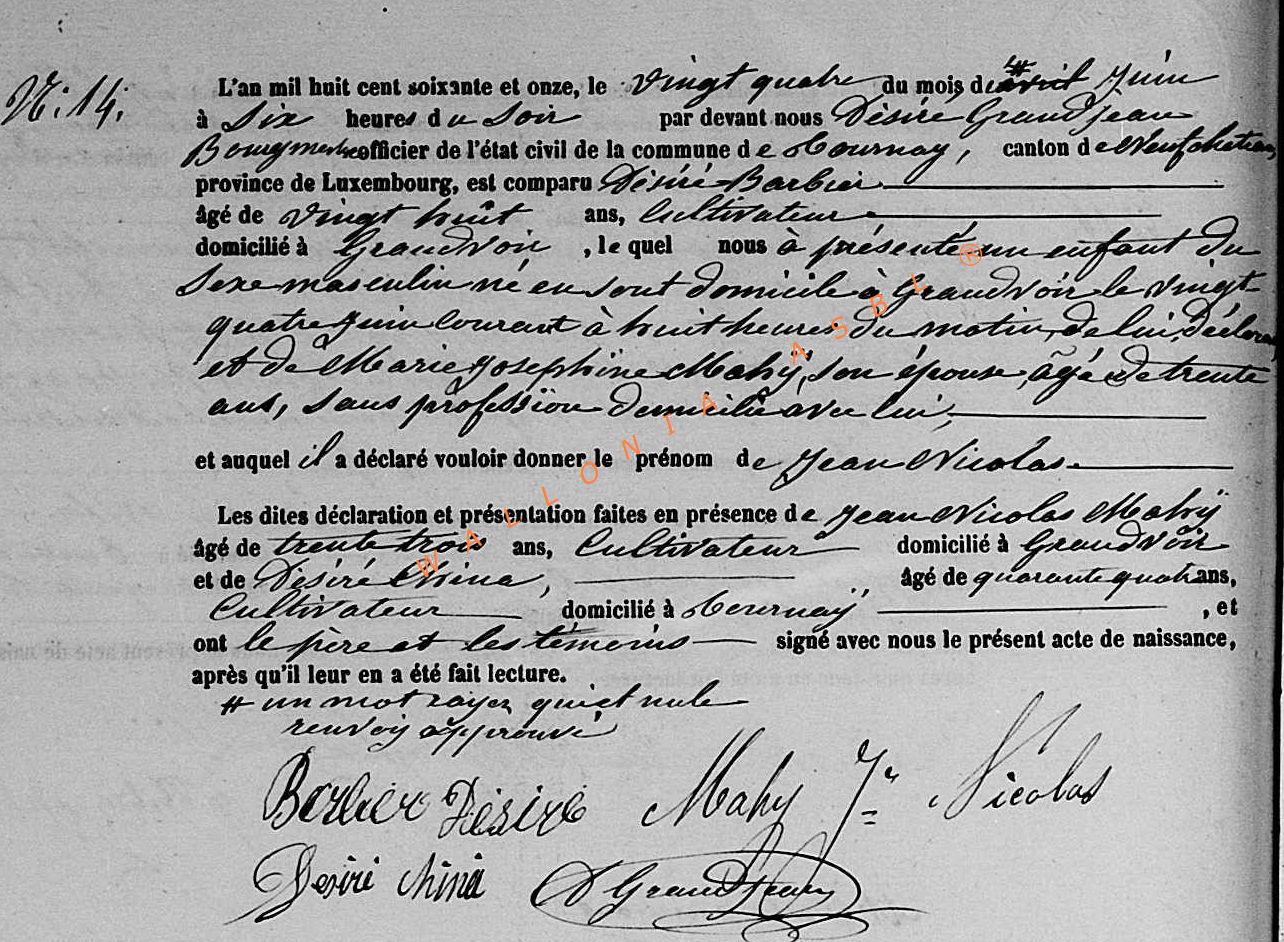 N: 14.
L'an mil huit cent soixante et onze, le vingt quatre du mois de avril # Juin
à Six heures du Soir par devant nous Désiré GrandJean
Bourgmestre officier de l'état civil de la commune de Tournay, canton de Neufchateau
province de Luxembourg, est comparu Désiré Barbier
âgé de vingt huit ans, Cultivateur
domicilié à Grandvoir, le quel nous à présenté un enfant du
Sexe masculin né en sont domicile à Grandvoir le vingt
quatre Juin courant à huit heures du matin, de lui, déclarant
et de Marie Josephine Mahÿ, son épouse, âgé de trente
ans, sans profession domicilié avec lui,
et auquel il a déclaré vouloir donner le prénom de Jean Nicolas.
Les dites déclaration et présentation faites en présence de Jean Nicolas Mahÿ
âgé de trente trois ans, Cultivateur domicilié à Grandvoir
et de Désiré China, âgé de quarante quatre ans,
Cultivateur domicilié à Tournaÿ, , et
ont le père et les témoins signé avec nous le présent acte de naissance,
après qu'il leur en a été fait lecture.
# un mot rayez qui est nule
renvoy approuvé
Barbier Désiré Mahy Jn Nicolas
Desiré China D GrandJean
WALLONIA ASBL ®